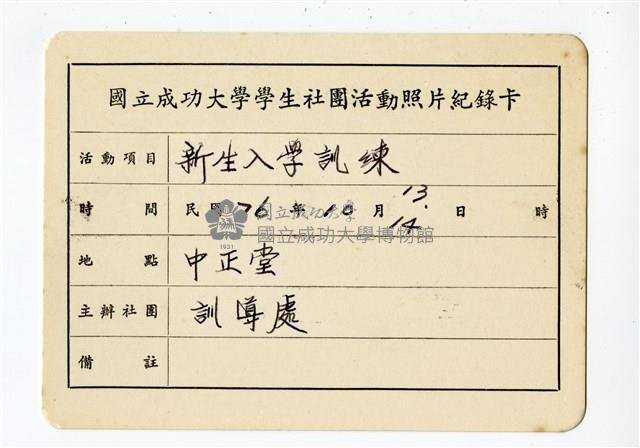 國立成功大學學生社團活動照片紀錄卡
活動項目 新生入學訓練
時間 民國76年10月13.14.日 時
國立成功大學
國立成功大學博物館
1931
地點 中正堂
主辦社團 訓導處
備註